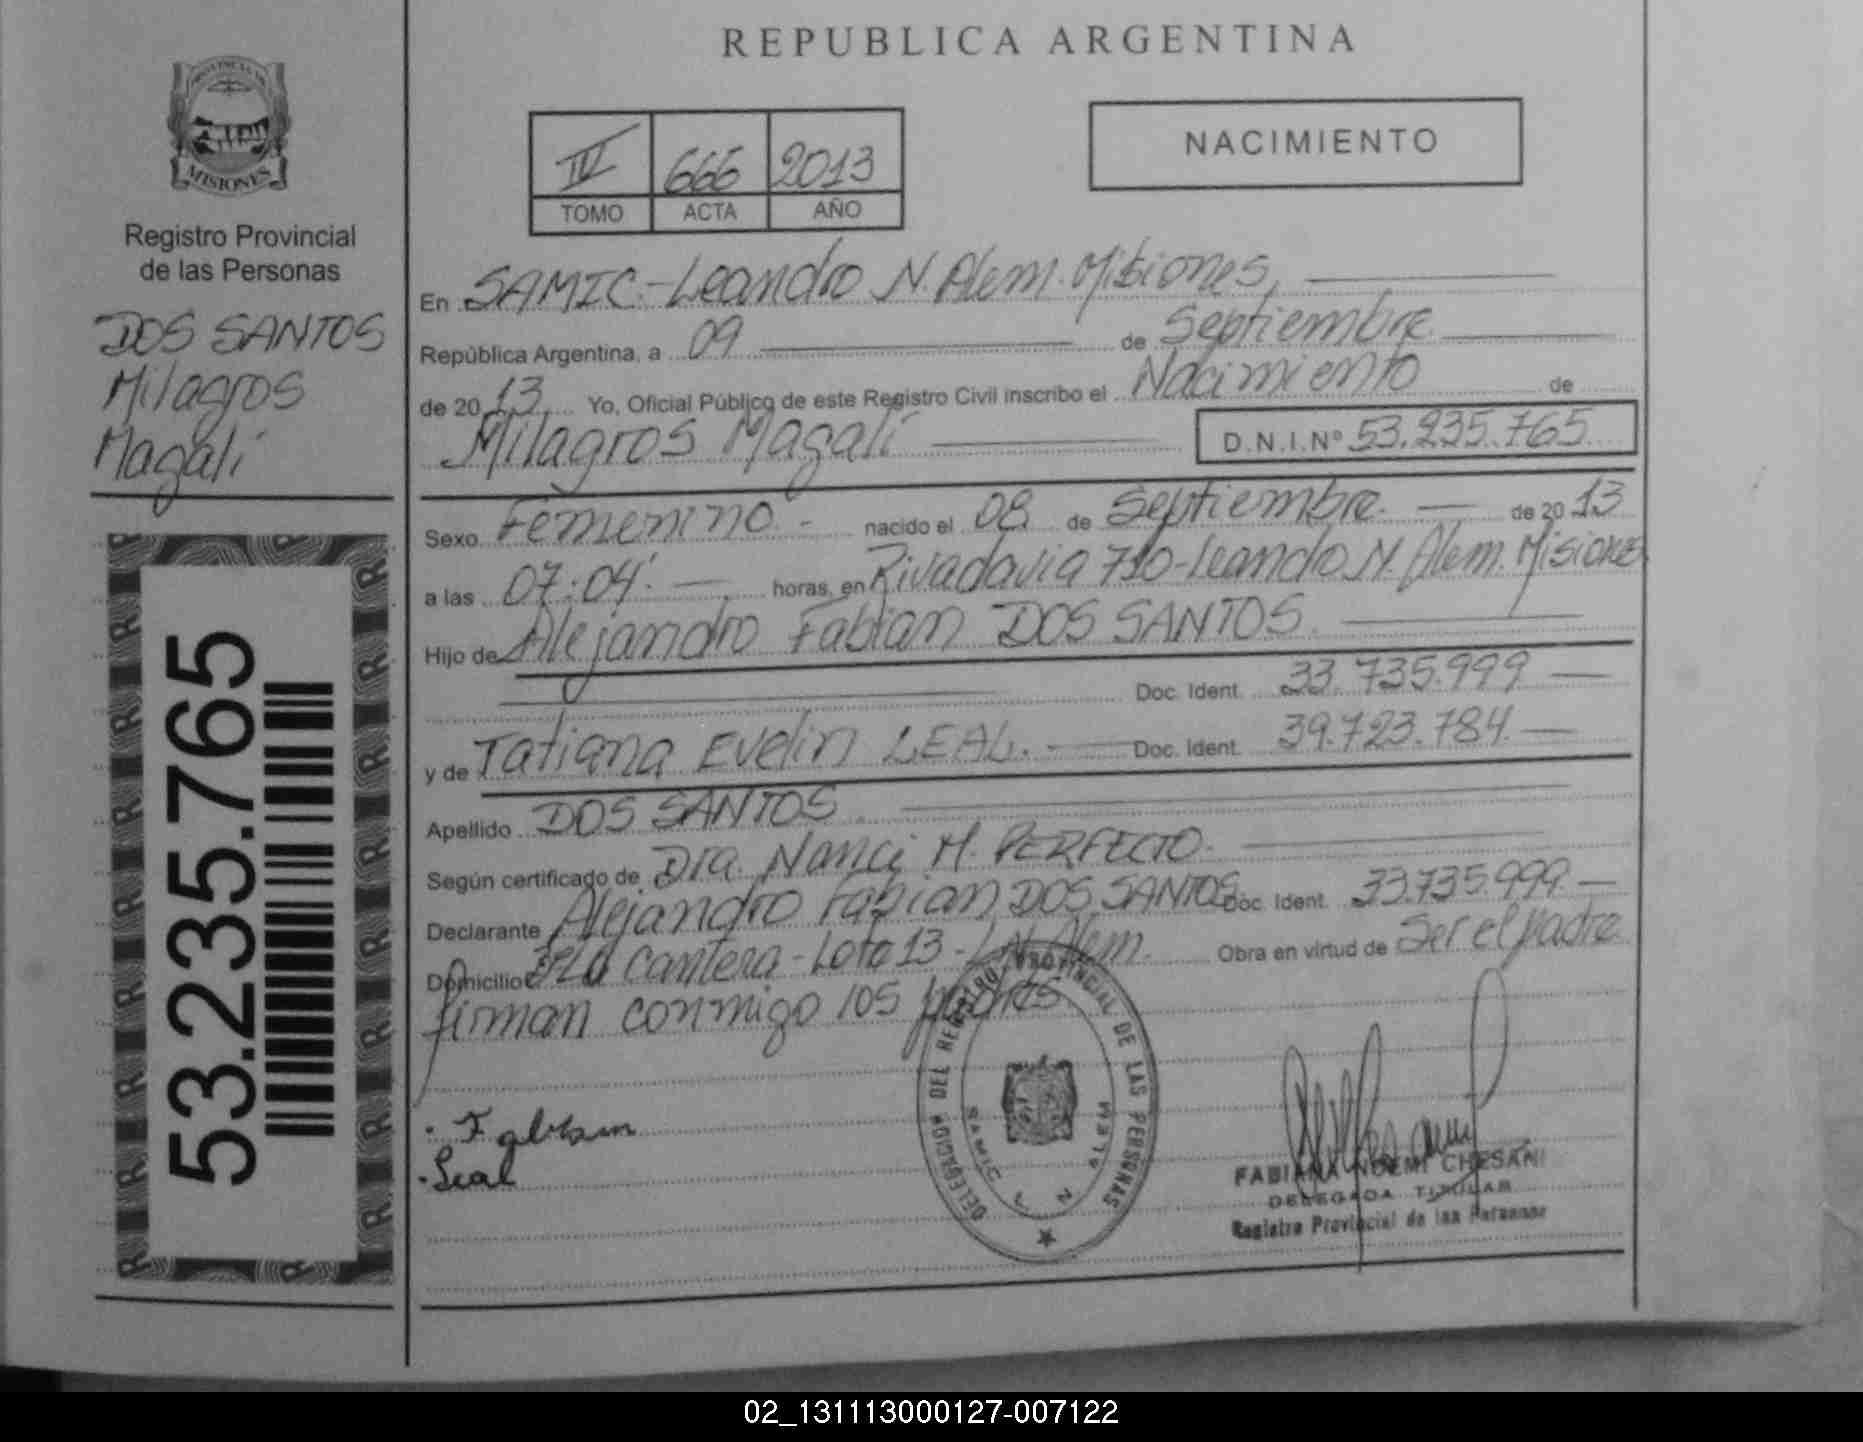 REPUBLICA ARGENTINA
PROVINCIA DE
MISIONES
Registro Provincial
de las Personas
DOS SANTOS
Milagros
Magalí
53.235.765
IV 666 2013
TOMO ACTA AÑO
NACIMIENTO
En SAMIC-Leandro N. Alem. Misiones,
República Argentina, a 09 de Septiembre
de 2013 Yo, Oficial Público de este Registro Civil inscribo el Nacimiento de
Milagros Magalí D.N.I.Nº 53.235.765
Sexo Femenino.- nacido el 08 de Septiembre. de 2013
a las 07:04'. horas, en Rivadavia 710-Leandro N. Alem. Misiones
Hijo de Alejandro Fabian DOS SANTOS.
Doc. Ident. 33.735.999
y de Tatiana Evelin LEAL. Doc. Ident. 39.723.784.
Apellido DOS SANTOS
Según certificado de Dra. Nanci M. PERFECTO.
Declarante Alejandro Fabian DOS SANTOS Doc. Ident. 33.735.999.
Domicilio Cantera-Lote 13-L.N. Alem. Obra en virtud de Ser el padre
firman conmigo los padres
. Fabian
.Leal
DELEGACION DEL REGISTRO PROVINCIAL DE LAS PERSONAS
SAMIC L N ALEM
FABIANA NOEMI CHESANI
DELEGADA TITULAR
Registro Provincial de las Personas
02_131113000127-007122